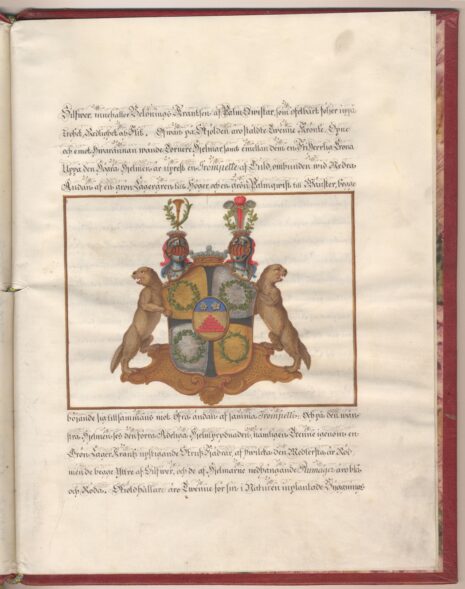 Silfwer, innehåller Belönings Krantsen af Palm Qwistar, som ofelbart följer uppå
Trohet, Redlighet och Flit. Ofwan på Skjölden äro stälde Twenne Krönte, Öpne
och emot hwarannan wände Torners Hjelmar, samt emellan dem en Friherrlig Crona
Uppå den Högra Hjelmen är uprest en Trompette af Guld, ombunden wid Nedra
Ändan af en grön Lagerqwist til Höger, och en Grön Palmqwist til Wänster, bägge
böjande sig tillsammans mot Öfra ändan af samma Trompette. Och på den wän-
stra Hjelmen ses den förra Adeliga Hjelmprydnaden, nämligen Trenne igenom en
Grön Lager Krants upstigande Struts Fjädrar, af hwilcka den Medlersta är Röd
men de bägge Yttre af Silfwer, och de af Hjelmarne nedhängande äro blå
och Röda. Sköldhållare äro Twenne för sin i Naturen inplantade Byggnings